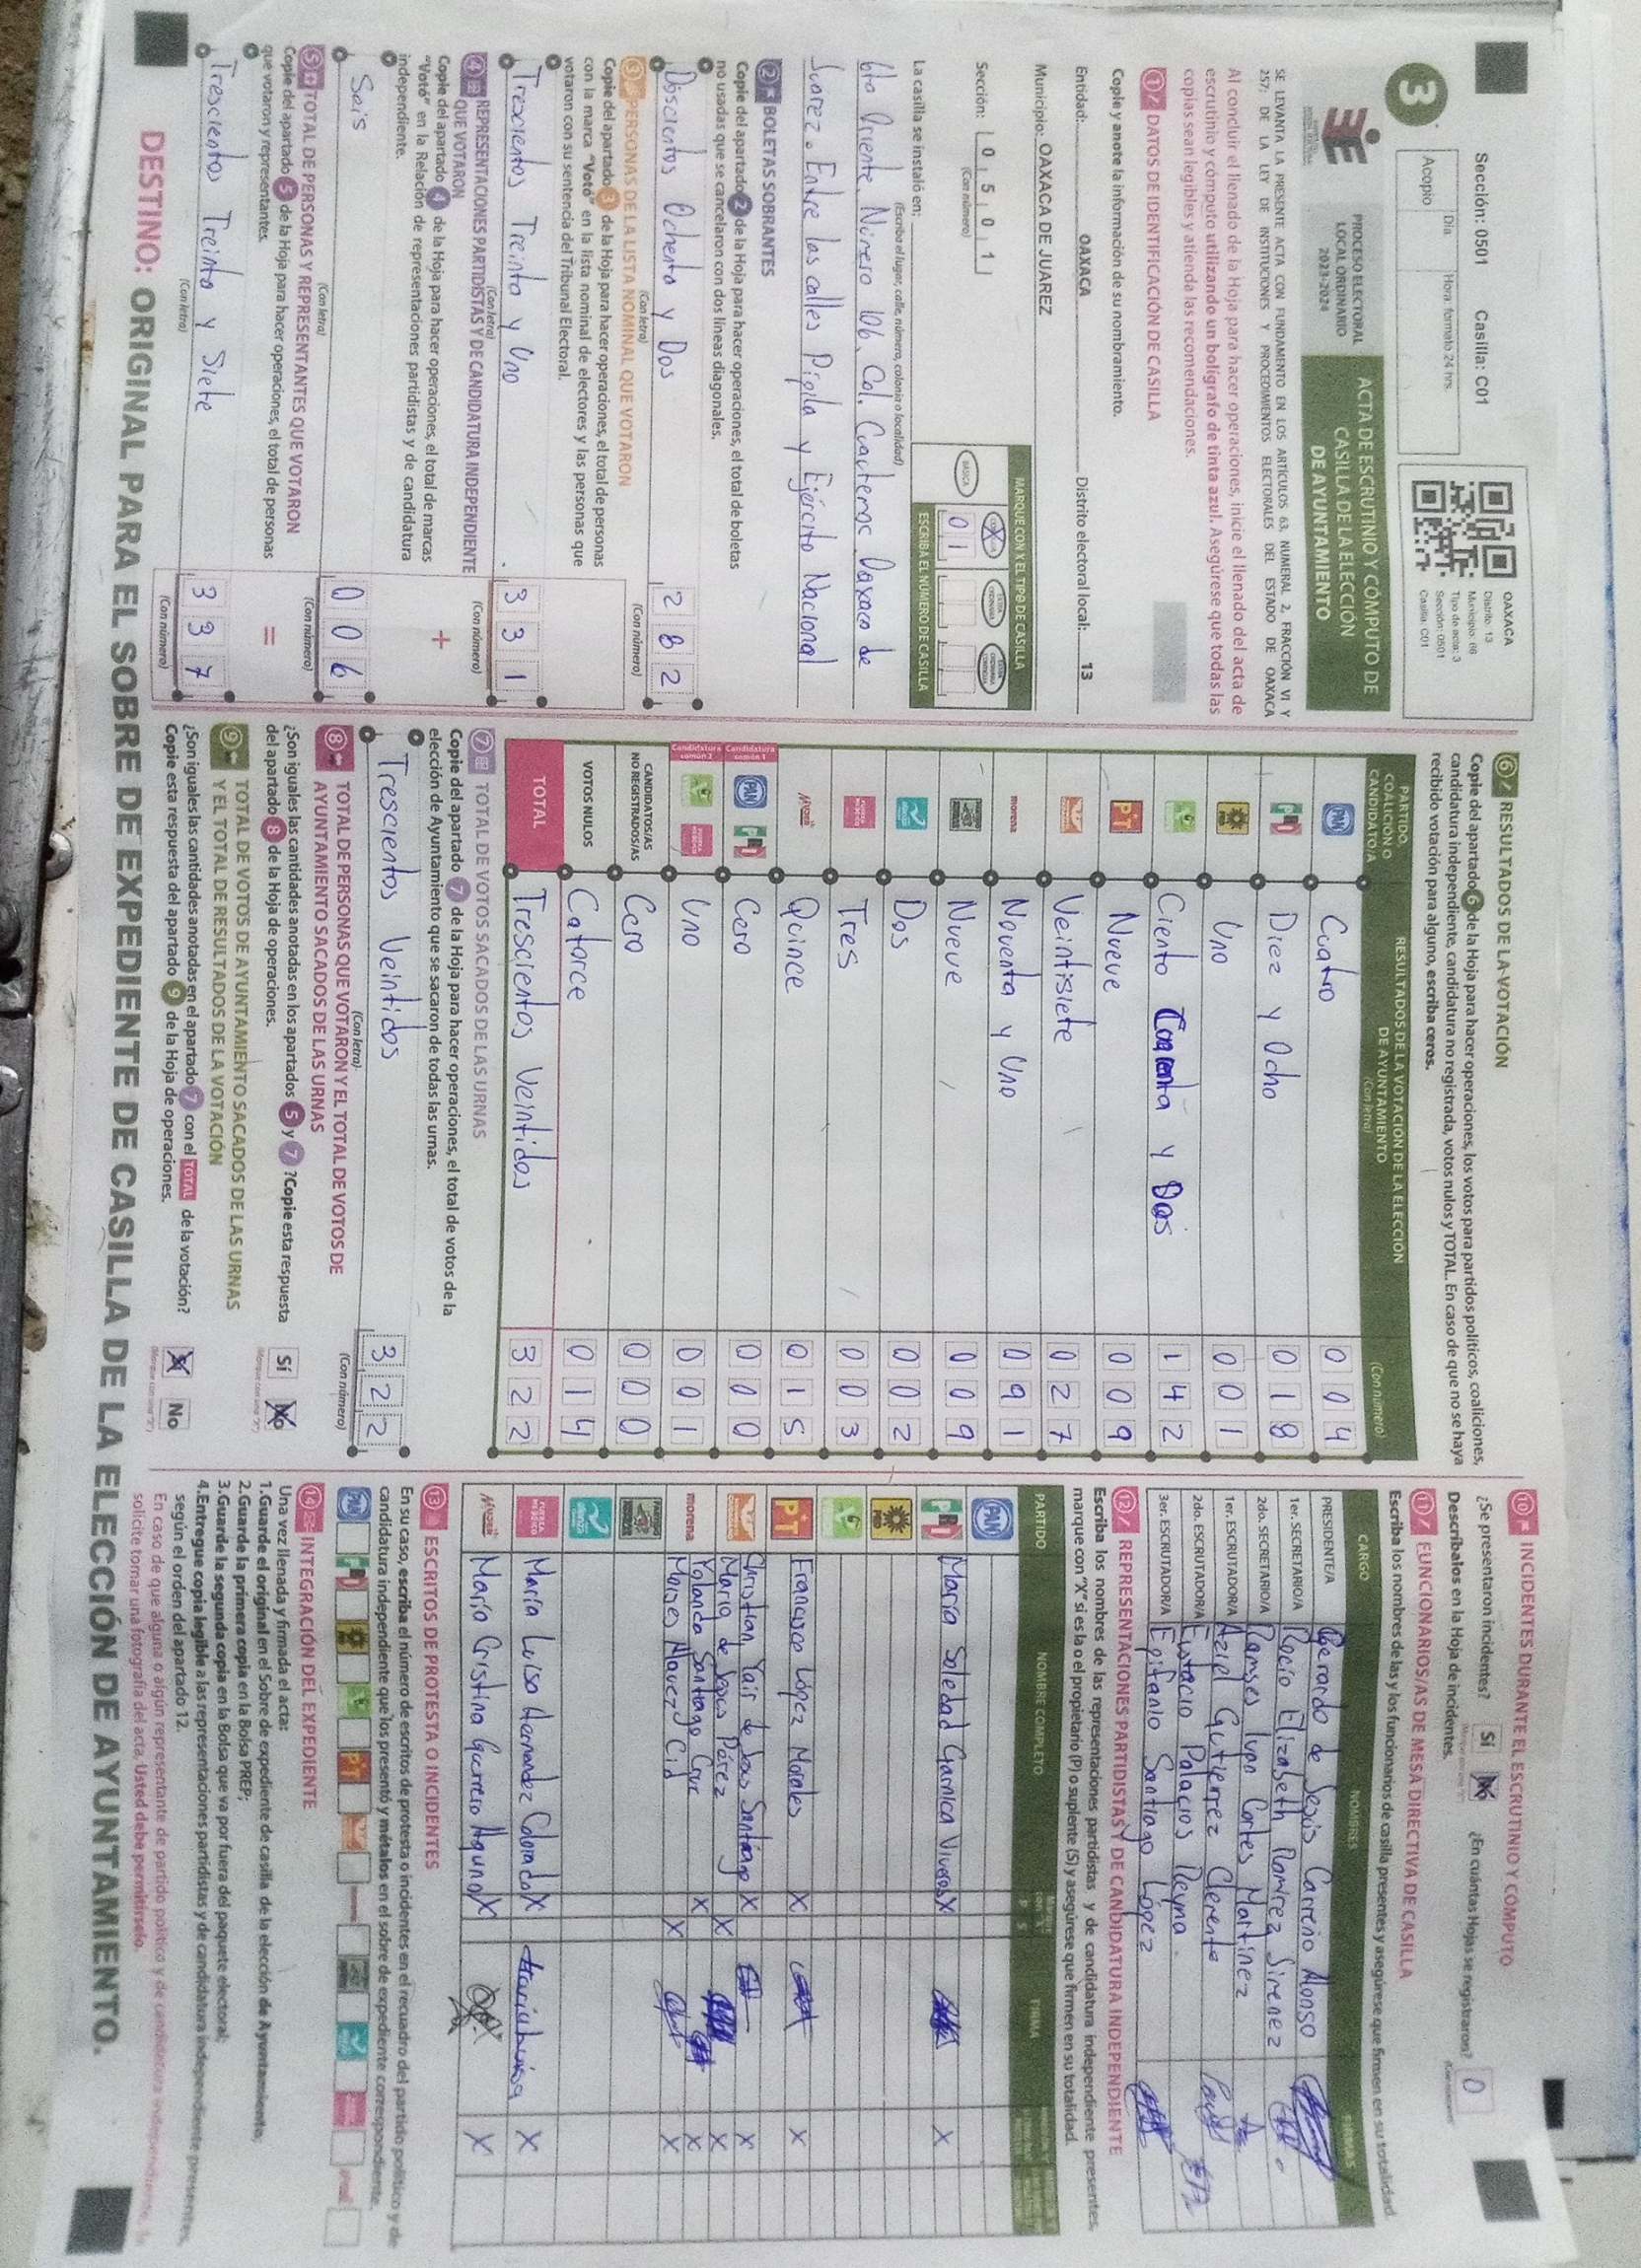 Sección: 0501 Casilla: C01
Día Hora: formato 24 hrs.
Acopio
OAXACA
Distrito: 13
Municipio: 66
Tipo de acta: 3
Sección: 0501
Casilla: C01
3
PROCESO ELECTORAL
LOCAL ORDINARIO
2023-2024
ACTA DE ESCRUTINIO Y CÓMPUTO DE
CASILLA DE LA ELECCIÓN
DE AYUNTAMIENTO
SE LEVANTA LA PRESENTE ACTA CON FUNDAMENTO EN LOS ARTÍCULOS 63, NUMERAL 2, FRACCIÓN VI Y
257; DE LA LEY DE INSTITUCIONES Y PROCEDIMIENTOS ELECTORALES DEL ESTADO DE OAXACA
Al concluir el llenado de la Hoja para hacer operaciones, inicie el llenado del acta de
escrutinio y cómputo utilizando un bolígrafo de tinta azul. Asegúrese que todas las
copias sean legibles y atienda las recomendaciones.
1 DATOS DE IDENTIFICACIÓN DE CASILLA
Copie y anote la información de su nombramiento.
Entidad: OAXACA Distrito electoral local: 13
Municipio: OAXACA DE JUAREZ
Sección: 0 5 0 1
(Con número)
MARQUE CON X EL TIPO DE CASILLA
BÁSICA
0 1
ESCRIBA EL NÚMERO DE CASILLA
La casilla se instaló en:
(Escriba el lugar, calle, número, colonia o localidad)
6ta Oriente, Número 106, Col. Cuauhtemoc Oaxaca de
Juarez. Entre las calles Pipila y Ejército Nacional
2 BOLETAS SOBRANTES
Copie del apartado 2 de la Hoja para hacer operaciones, el total de boletas
no usadas que se cancelaron con dos líneas diagonales.
Doscientos Ochenta y Dos 2 8 2
(Con letra) (Con número)
3 PERSONAS DE LA LISTA NOMINAL QUE VOTARON
Copie del apartado 3 de la Hoja para hacer operaciones, el total de personas
con la marca "Votó" en la lista nominal de electores y las personas que
votaron con su sentencia del Tribunal Electoral.
Trescientos Treinta y Uno 3 3 1
(Con letra) (Con número)
4 REPRESENTACIONES PARTIDISTAS Y DE CANDIDATURA INDEPENDIENTE
QUE VOTARON
Copie del apartado 4 de la Hoja para hacer operaciones, el total de marcas
"Votó" en la Relación de representaciones partidistas y de candidatura
independiente.
+
Seis 0 0 6
(Con letra) (Con número)
5 TOTAL DE PERSONAS Y REPRESENTANTES QUE VOTARON
Copie del apartado 5 de la Hoja para hacer operaciones, el total de personas
que votaron y representantes.
=
Trescientos Treinta y Siete 3 3 7
(Con letra) (Con número)
6 RESULTADOS DE LA VOTACIÓN
Copie del apartado 6 de la Hoja para hacer operaciones, los votos para partidos políticos, coaliciones,
candidatura independiente, candidatura no registrada, votos nulos y TOTAL. En caso de que no se haya
recibido votación para alguno, escriba ceros.
PARTIDO, COALICIÓN O CANDIDATO/A
RESULTADOS DE LA VOTACIÓN DE LA ELECCIÓN
DE AYUNTAMIENTO
(Con letra) (Con número)
PAN Cuatro 0 0 4
PRI Diez y Ocho 0 1 8
PRD Uno 0 0 1
Ciento Cuarenta y Dos 1 4 2
PT Nueve 0 0 9
Veintisiete 0 2 7
morena Noventa y Uno 0 9 1
Nueve 0 0 9
Dos 0 0 2
FUERZA MÉXICO Tres 0 0 3
MUJER Quince 0 1 5
Candidatura común 1 PAN PRI Cero 0 0 0
Candidatura común 2 FUERZA MÉXICO Uno 0 0 1
CANDIDATOS/AS NO REGISTRADOS/AS Cero 0 0 0
VOTOS NULOS Catorce 0 1 4
TOTAL Trescientos Veintidos 3 2 2
7 TOTAL DE VOTOS SACADOS DE LAS URNAS
Copie del apartado 7 de la Hoja para hacer operaciones, el total de votos de la
elección de Ayuntamiento que se sacaron de todas las urnas.
Trescientos Veintidos 3 2 2
(Con letra) (Con número)
8 TOTAL DE PERSONAS QUE VOTARON Y EL TOTAL DE VOTOS DE
AYUNTAMIENTO SACADOS DE LAS URNAS
¿Son iguales las cantidades anotadas en los apartados 5 y 7 ?Copie esta respuesta
del apartado 8 de la Hoja de operaciones.
Sí No
9 TOTAL DE VOTOS DE AYUNTAMIENTO SACADOS DE LAS URNAS
Y EL TOTAL DE RESULTADOS DE LA VOTACIÓN
¿Son iguales las cantidades anotadas en el apartado 7 con el TOTAL de la votación?
Copie esta respuesta del apartado 9 de la Hoja de operaciones.
Sí No
10 INCIDENTES DURANTE EL ESCRUTINIO Y CÓMPUTO
¿Se presentaron incidentes? Sí No ¿En cuántas Hojas se registraron? 0
Descríbalos en la Hoja de incidentes.
11 FUNCIONARIOS/AS DE MESA DIRECTIVA DE CASILLA
Escriba los nombres de las y los funcionarios de casilla presentes y asegúrese que firmen en su totalidad
CARGO NOMBRES FIRMAS
PRESIDENTE/A Gerardo de Jesús Carreño Alonso
1er. SECRETARIO/A Rocío Elizabeth Ramírez Simenez
2do. SECRETARIO/A Ramses Iván Cortes Martínez
1er. ESCRUTADOR/A Aziel Gutierrez Clemente
2do. ESCRUTADOR/A Eustacio Palacios Reyna
3er. ESCRUTADOR/A Epifanio Santiago López
12 REPRESENTACIONES PARTIDISTAS Y DE CANDIDATURA INDEPENDIENTE
Escriba los nombres de las representaciones partidistas y de candidatura independiente presentes,
marque con "X" si es la o el propietario (P) o suplente (S) y asegúrese que firmen en su totalidad.
PARTIDO NOMBRE COMPLETO FIRMA
PAN
PRI María Soledad Garnica Viveros X X
PRD
PT Francisco López Morales X X
Christian Yair de Jesus Santiago X X
María de Jesus Pérez X X
morena Yolanda Santiago Cruz X X
Moises Narvez Cid X X
FUERZA MÉXICO María Luisa Hernandez Colorado X X
MUJER María Cristina Guerrero Aguna X X
13 ESCRITOS DE PROTESTA O INCIDENTES
En su caso, escriba el número de escritos de protesta o incidentes en el recuadro del partido político y de
candidatura independiente que los presentó y métalos en el sobre de expediente correspondiente.
14 INTEGRACIÓN DEL EXPEDIENTE
Una vez llenada y firmada el acta:
1.Guarde el original en el Sobre de expediente de casilla de la elección de Ayuntamiento;
2.Guarde la primera copia en la Bolsa PREP;
3.Guarde la segunda copia en la Bolsa que va por fuera del paquete electoral;
4.Entregue copia legible a las representaciones partidistas y de candidatura independiente presentes,
según el orden del apartado 12.
En caso de que alguna o algún representante de partido político y de candidatura independiente, la
solicite tomar una fotografía del acta, Usted debe permitírselo.
DESTINO: ORIGINAL PARA EL SOBRE DE EXPEDIENTE DE CASILLA DE LA ELECCIÓN DE AYUNTAMIENTO.